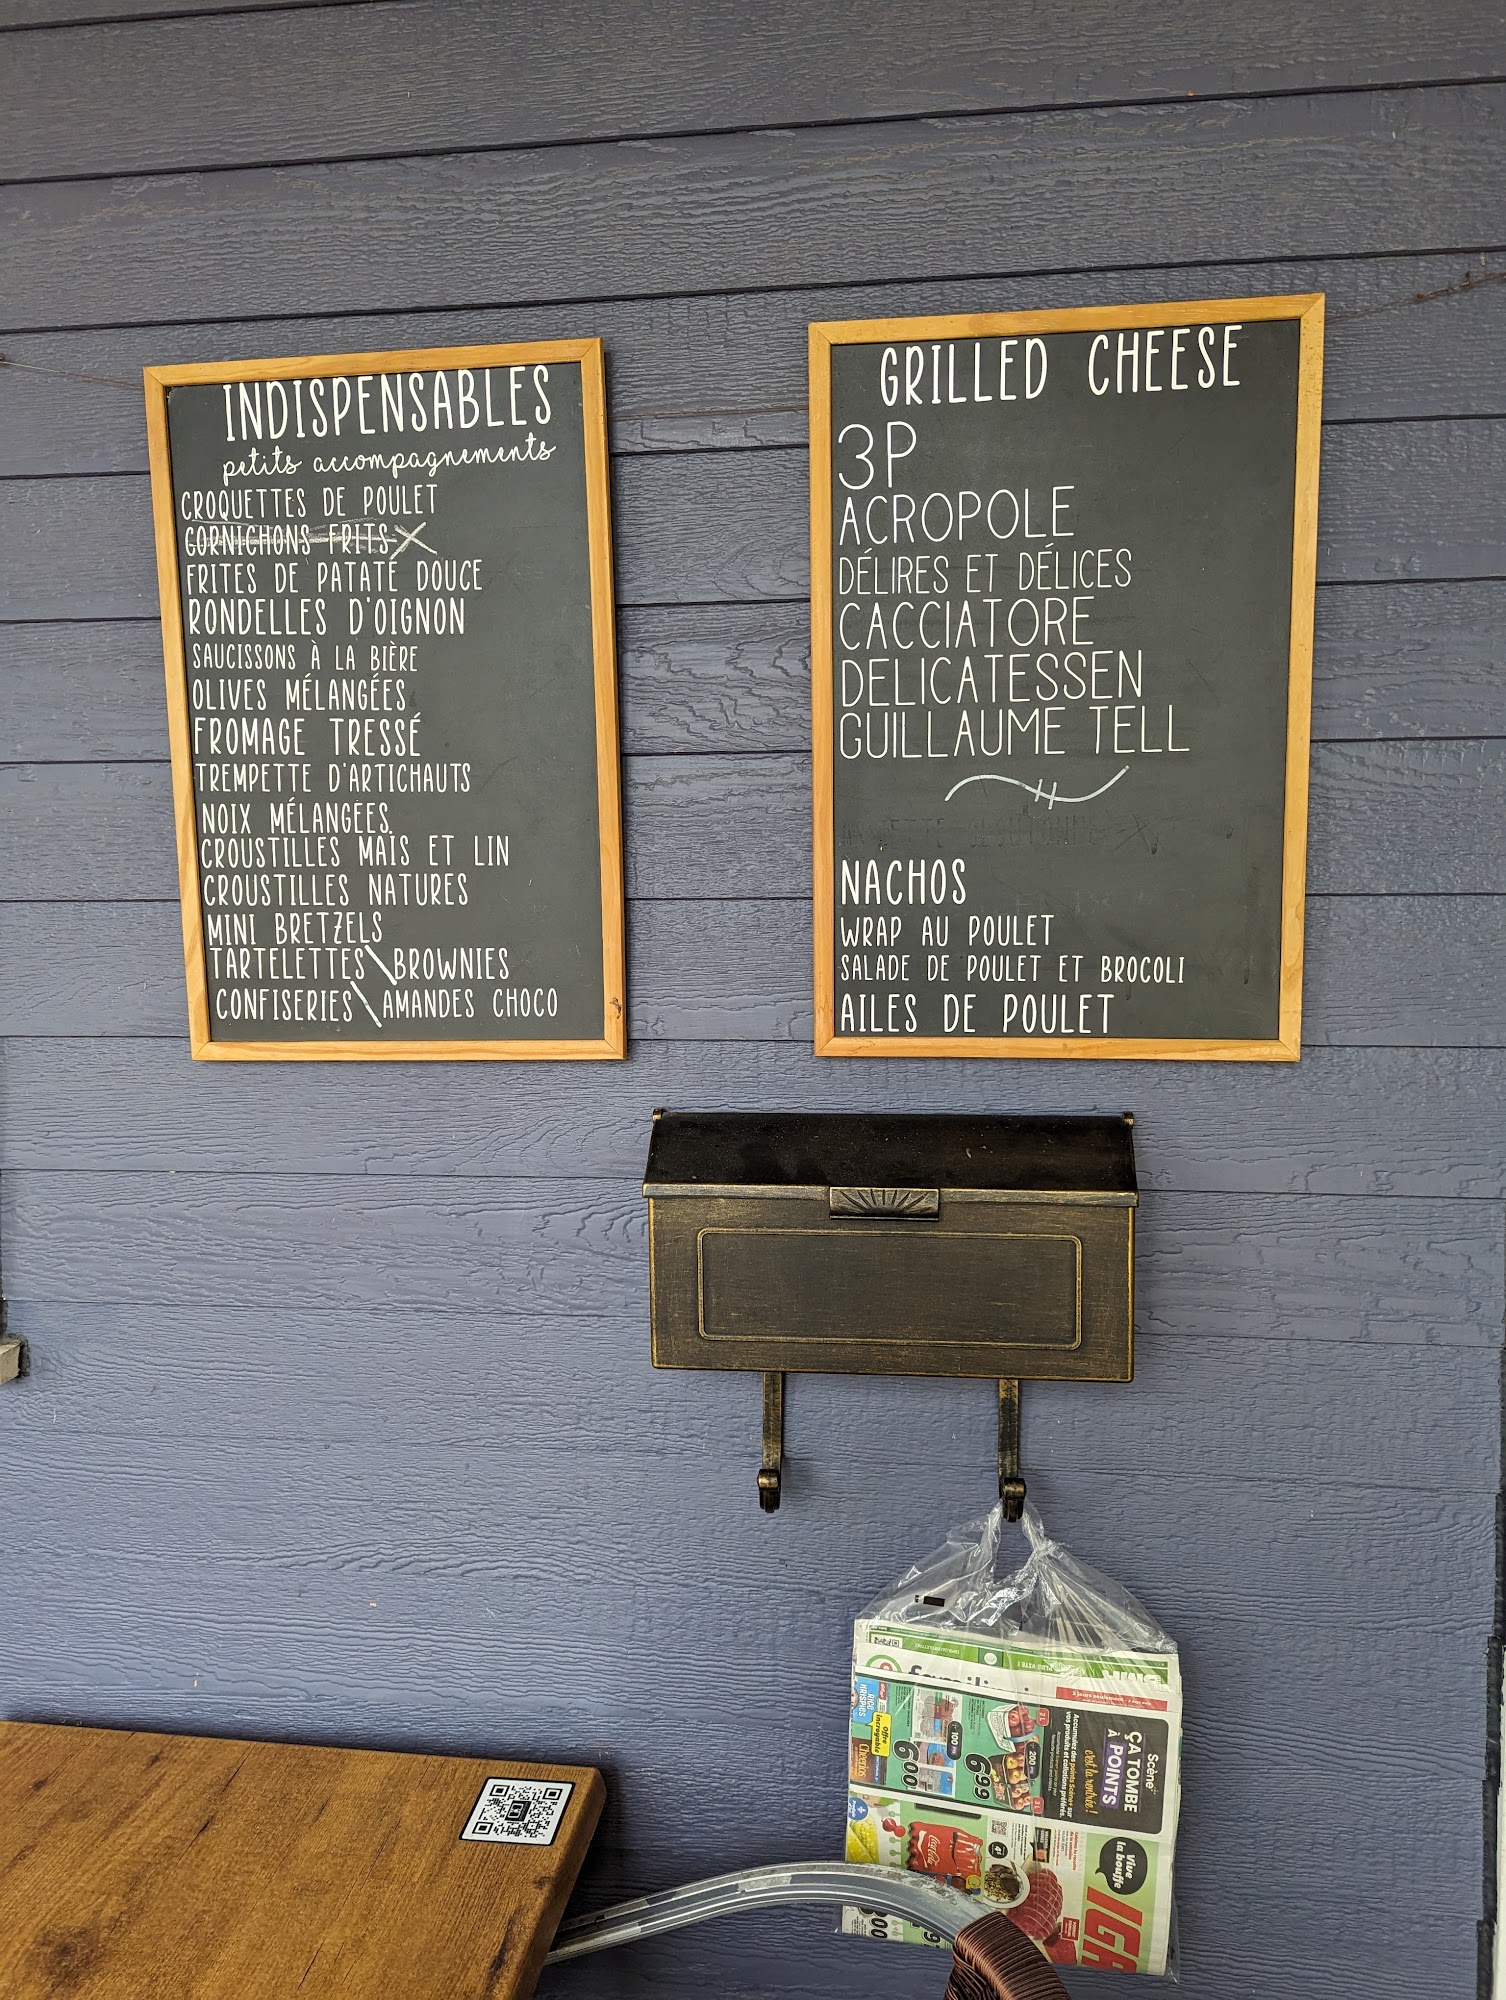 INDISPENSABLES
petits accompagnements
CROQUETTES DE POULET
CORNICHONS FRITS X
FRITES DE PATATE DOUCE
RONDELLES D'OIGNON
SAUCISSONS À LA BIÈRE
OLIVES MÉLANGÉES
FROMAGE TRESSÉ
TREMPETTE D'ARTICHAUTS
NOIX MÉLANGÉES
CROUSTILLES MAÏS ET LIN
CROUSTILLES NATURES
MINI BRETZELS
TARTELETTES \ BROWNIES
CONFISERIES \ AMANDES CHOCO
GRILLED CHEESE
3P
ACROPOLE
DÉLIRES ET DÉLICES
CACCIATORE
DELICATESSEN
GUILLAUME TELL
NACHOS
WRAP AU POULET
SALADE DE POULET ET BROCOLI
AILES DE POULET
Scène+
ÇA TOMBE
À POINTS
c'est la rentrée!
Accumulez des points Scène+ sur
RICE KRISPIES
Offre
incroyable
Cheerios
100
600
200
699
2 L
Coca-Cola
Vive
la bouffe
IGA